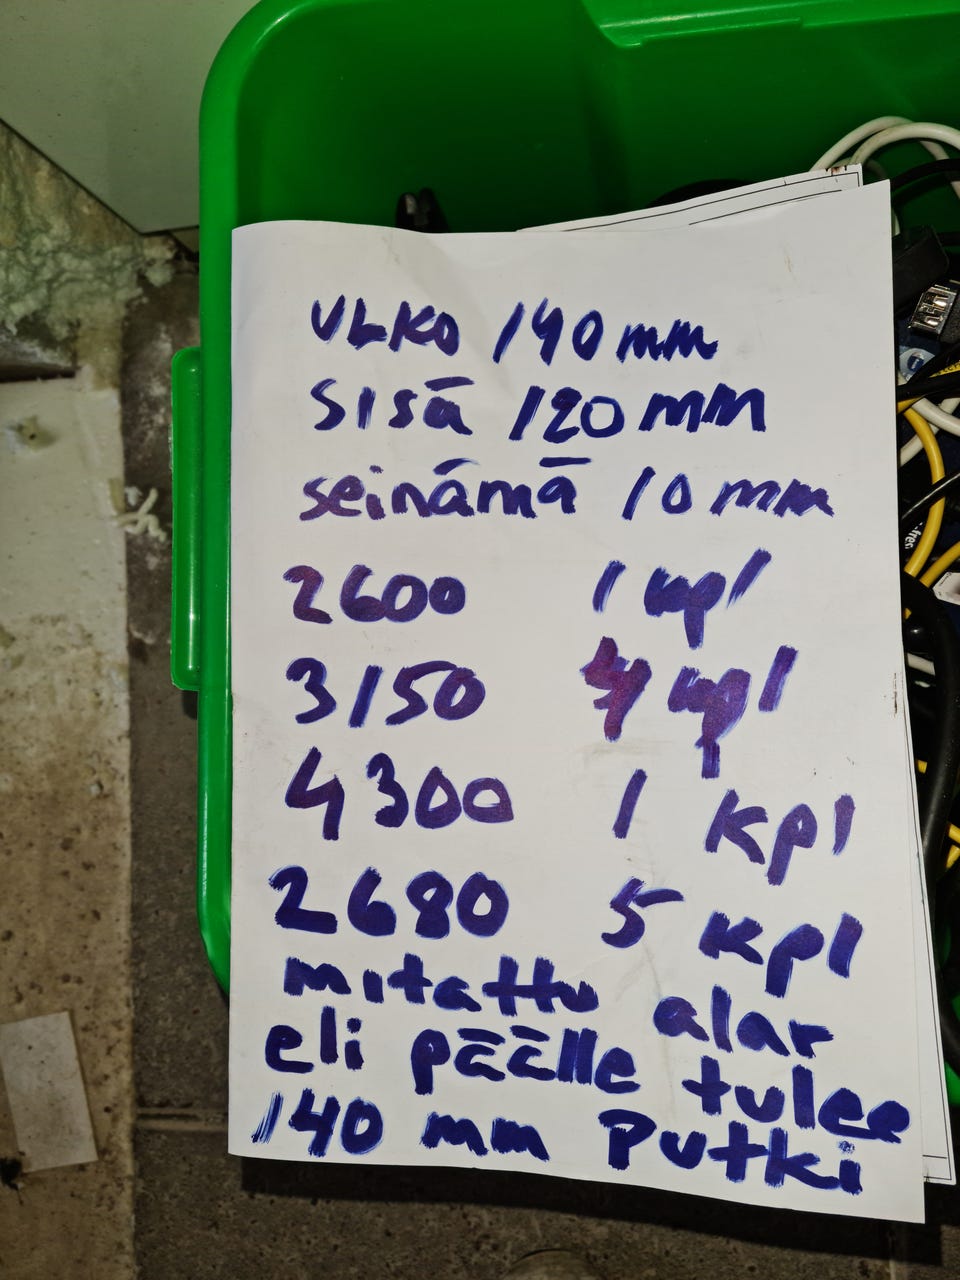 ULKO 140 mm
SISÄ 120 mm
seinämä 10 mm
2600 1 kpl
3150 4 kpl
4300 1 kpl
2680 5 kpl
mitattu alar
eli päälle tulee
140 mm Putki